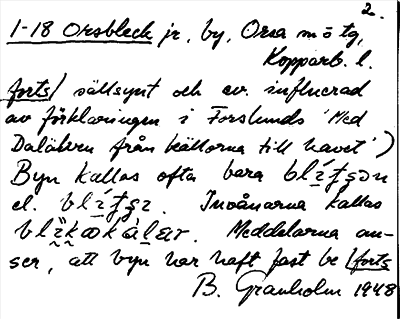 2.
1-18 Orsbleck jr, by, Orsa sn o tg,
Kopparb. l.
forts/ sällsynt och ev. influerad
av förklaringen i Forslunds 'Med
Dalälven från källorna till havet')
Byn kallas ofta bara
el. Invånarna kallas
Meddelarna an-
ser, att byn har haft fast be /forts
B. Granholm 1948